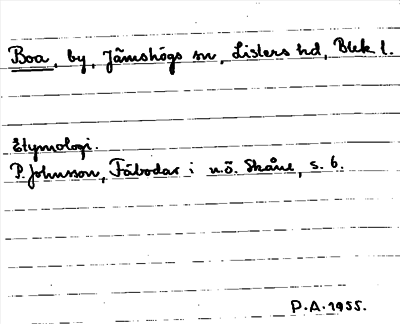 Boa, by, Jämshögs sn, Listers hd, Blek. l.
Etymologi.
P. Johnsson, Fäbodar i n.ö. Skåne, s. 6.
P.A. 1955.